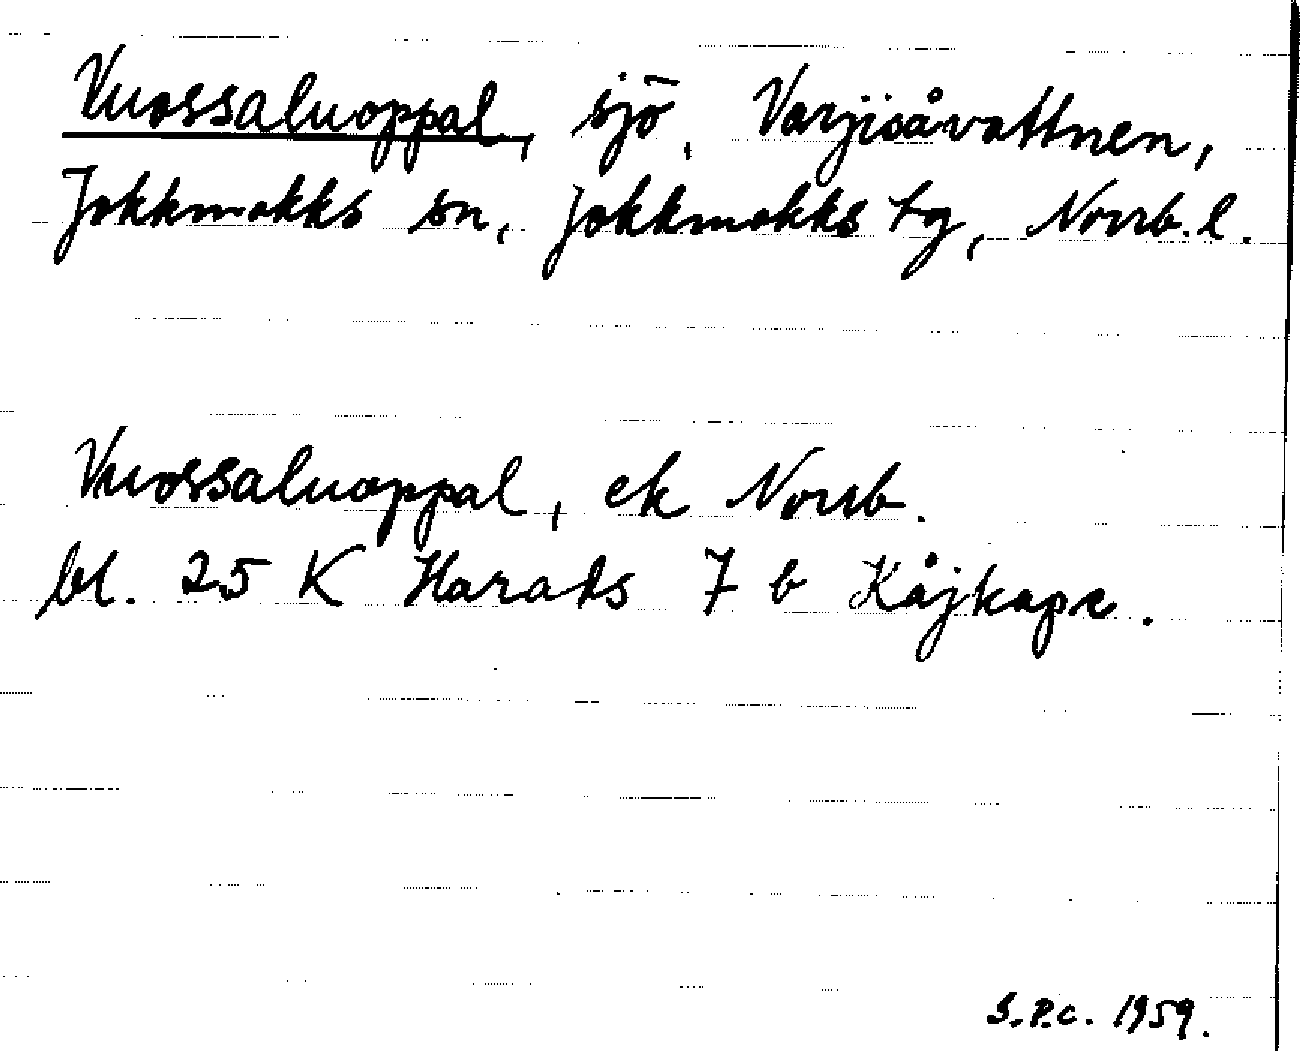 Vuossaluoppal, sjö, Varjisåvattnen,
Jokkmokks sn, Jokkmokks tg, Norrb. l.
Vuossaluoppal, ek Norrb.
bl. 25 K Harads 7 b Kåjkape.
S.P.C. 1959.